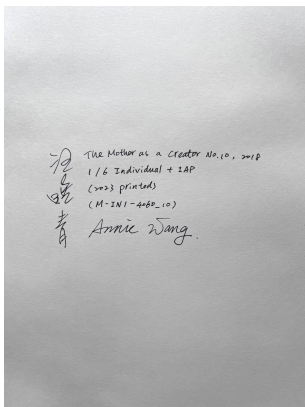 汪曉青
The Mother as a Creator No.10, 2018
1/6 Individual + 1AP
(2023 printed)
(M-IN1-4060_10)
Annie Wang.